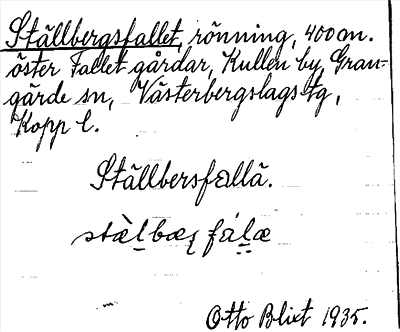 Ställbergsfallet, rönning, 400 m.
öster Fallet gårdar, Kullen by, Gran-
gärde sn, Västerbergslags tg,
Kopp l.
Ställbersfallä.
Otto Blixt 1935.